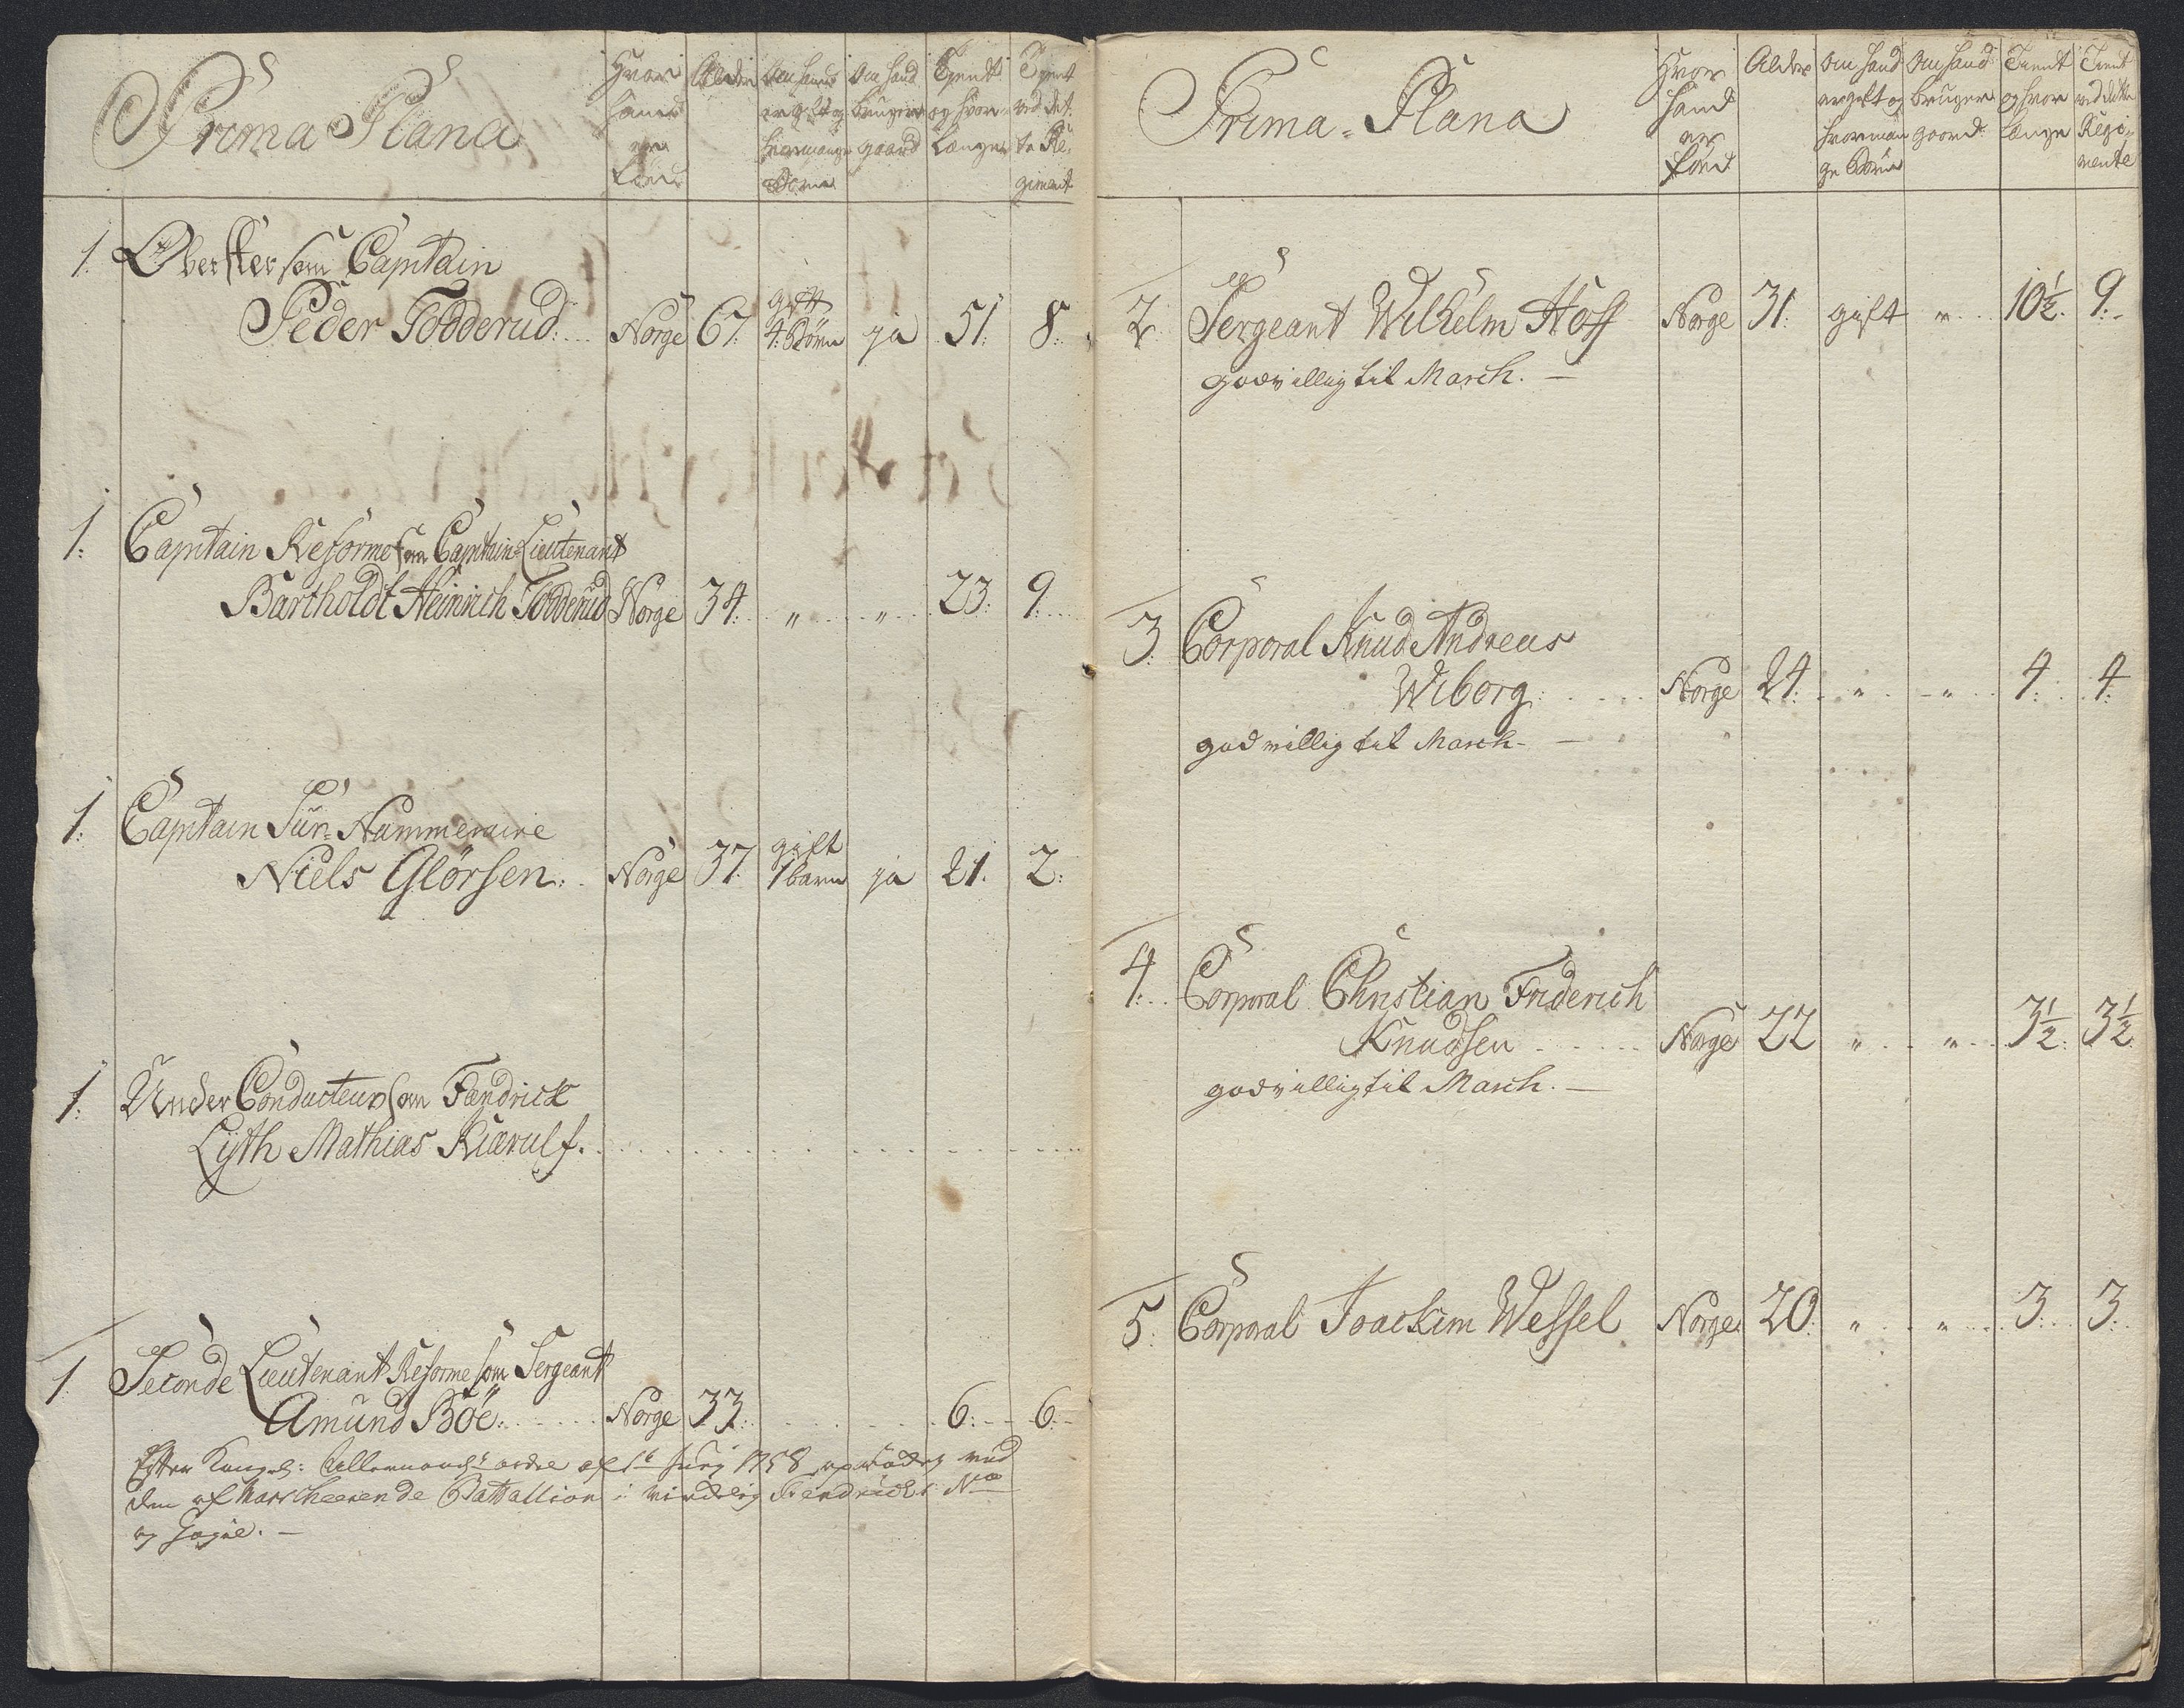 Prima Plana
Hvor hand er föed
Alder
Om hand er gift og hvormange Börn
Om hand bruger gaard
Tient og hvor længe
Tient ved dette Regiment
1. Oberster som Captain
Peder Todderud: Norge 67. gift 4. Börn ja 51. 8.
1. Captain Reforme som Captain Lieutenant
Bartholdt Heinrich Todderud Norge 34. " " 23. 9.
1. Captain Sur=Nummeraire
Niels Glörsen. Norge 37. gift 1 barn ja 21. 2.
1. Under Conducteur som Fændrick
Lyth Mathias Kiærulf.
1. Seconde Lieutenant Reforme som Sergeant
Amund Böe: Norge 33. 6. 6.
Efter Kongel: Allernaadst ordre af 1758 ved
den af Marscheerende Battallion i virkelig Fendricks
og Gage.
Prima=Plana
Hvor hand er föed
Alder
Om hand er gift og hvormange Börn
Om hand bruger gaard
Tient og hvor længe
Tient ved dette Regimente
2. Sergeant Wilhelm Hoff Norge 31. gift " 10½. 9.
godvillig til March.
3. Corporal Knud Andreas
Wiborg. Norge 24. " " 4. 4.
godvillig til March
4. Corporal Christian Friderich
Knudsen Norge 22 " " 3½. 3½.
godvillig til March.
5. Corporal Joackim Wessel Norge 20. " " 3. 3.